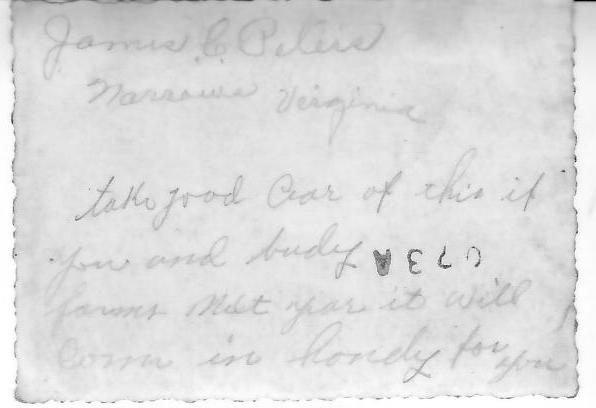 James C Peters
Narrows Virginia
take good Cear of this if
you and budy
farms next year it will
Come in handy for you